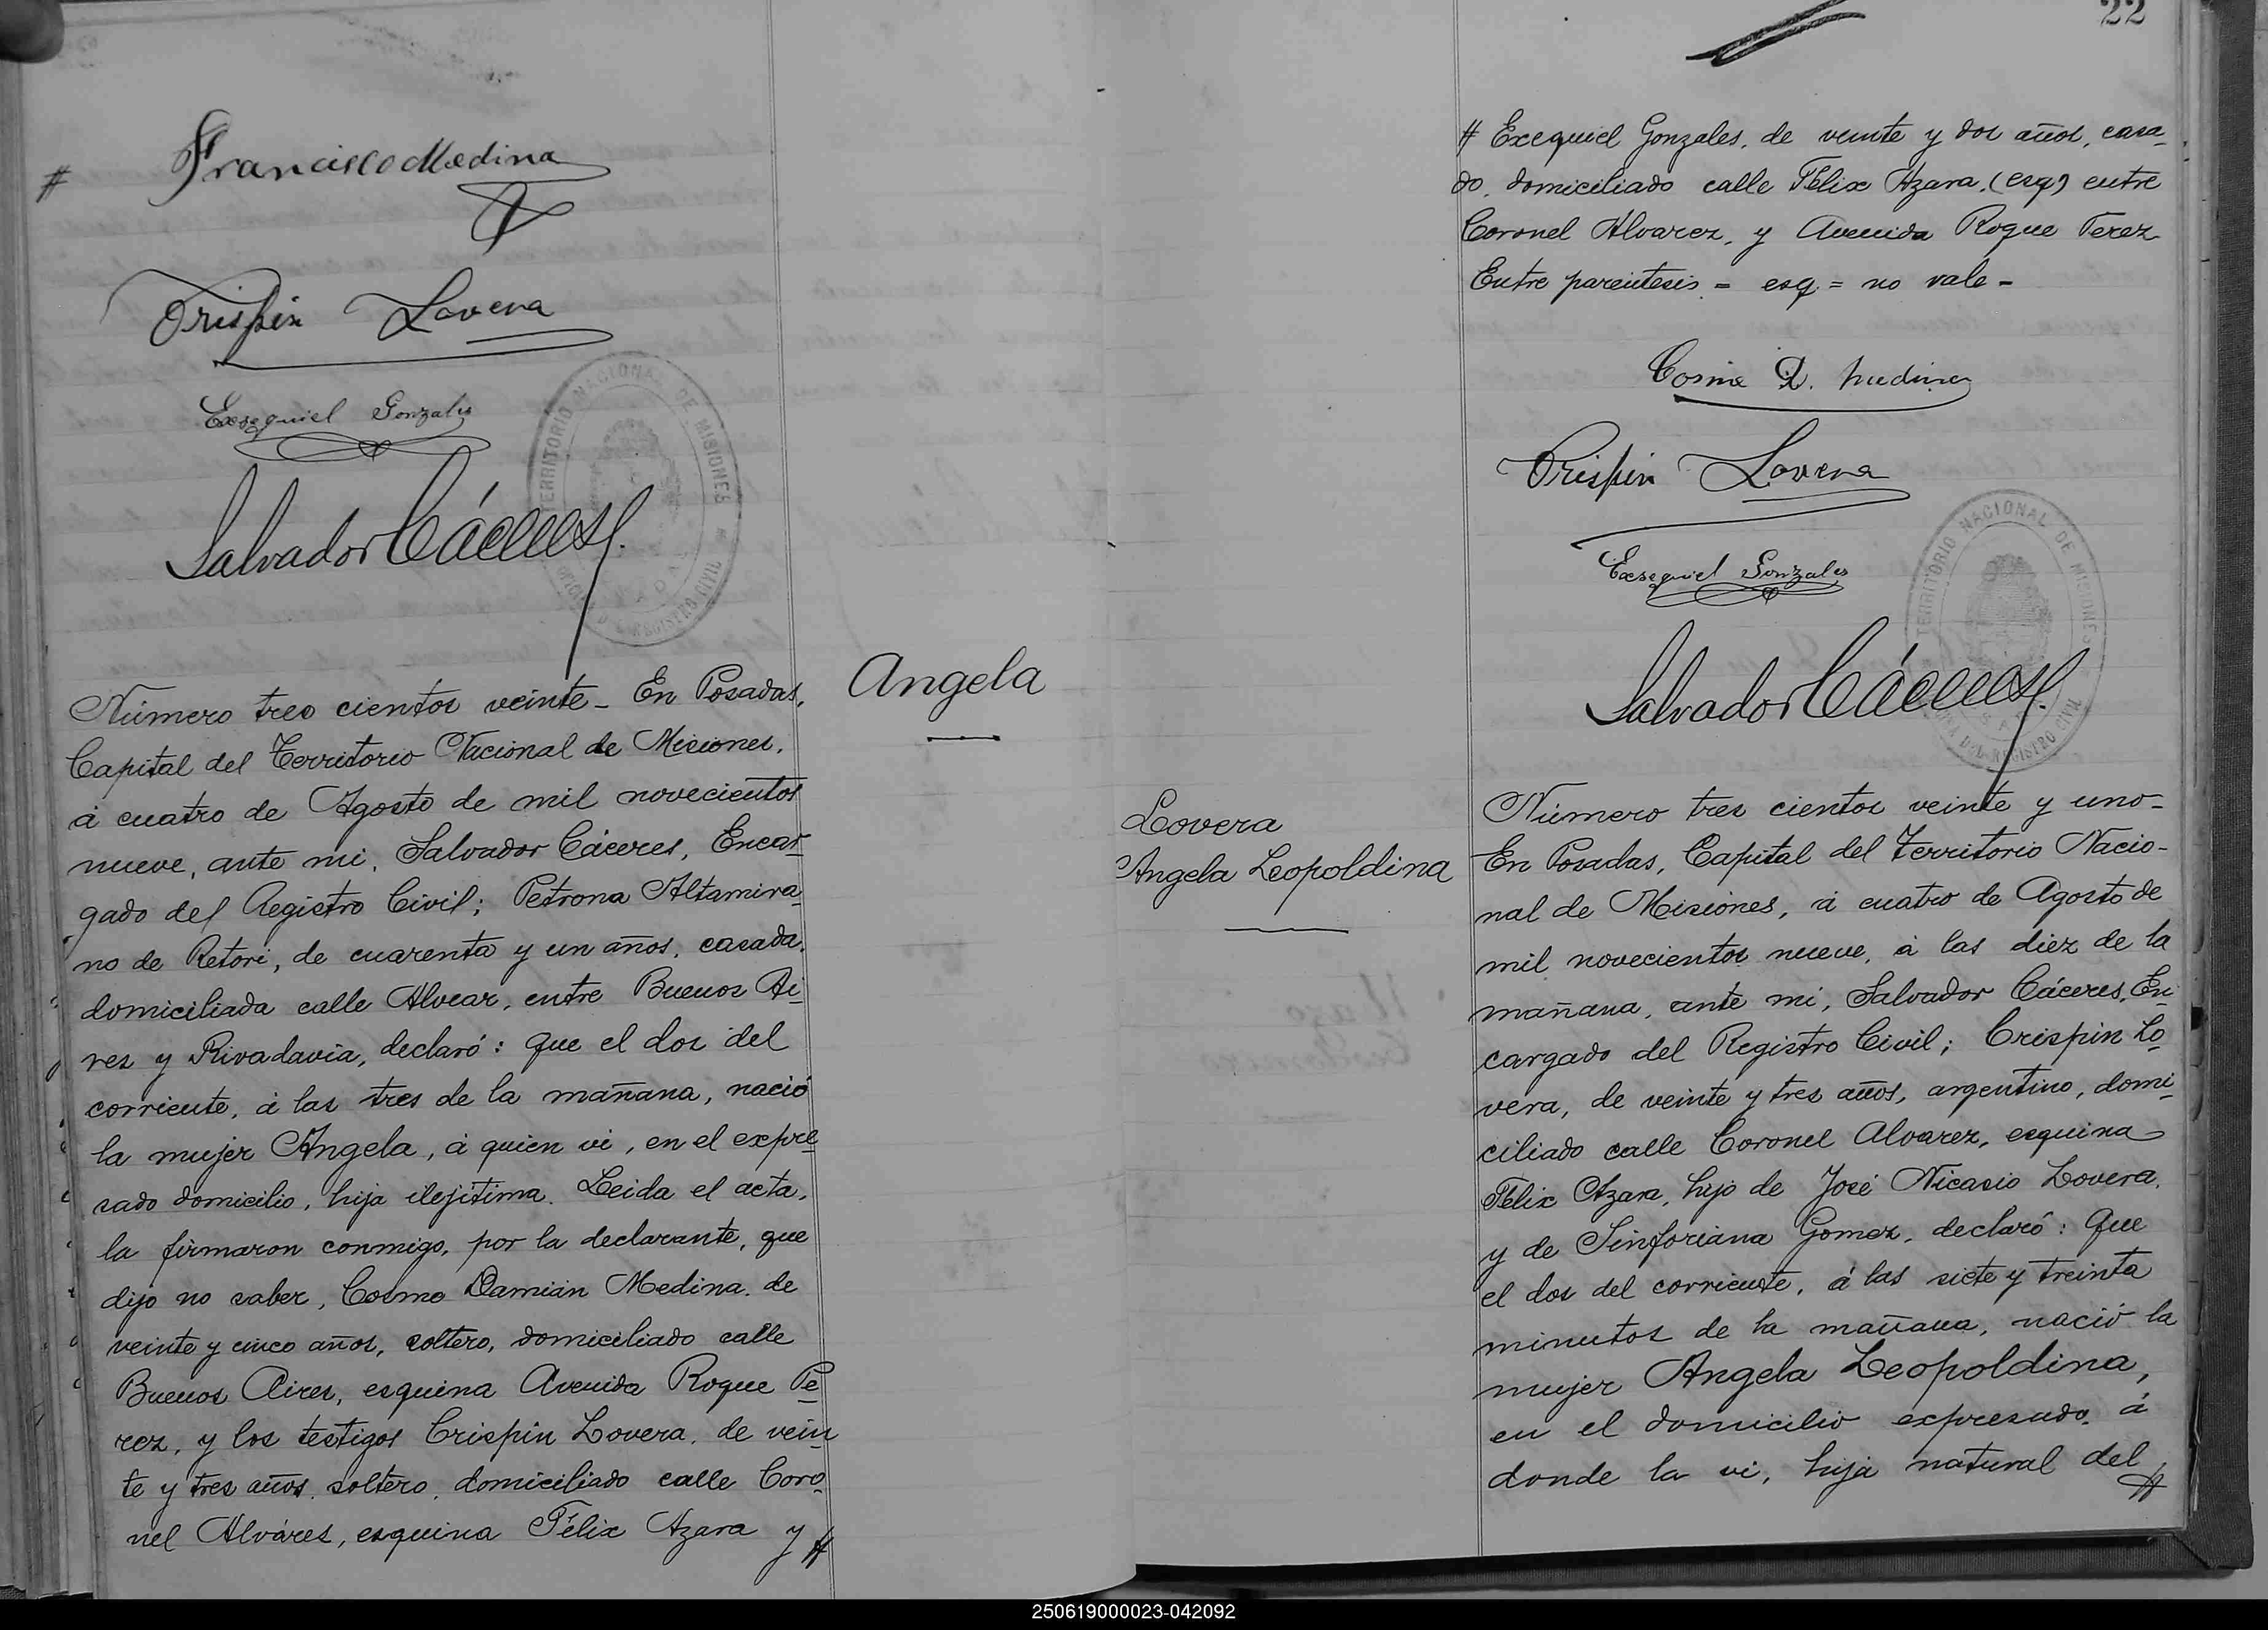 # Francisco Medina
Crispin Lovera
Exsequiel Gonzales
TERRITORIO NACIONAL DE MISIONES
REGISTRO CIVIL
Salvador Cáceres
Número tres cientos veinte - En Posadas,
Capital del Territorio Nacional de Misiones,
á cuatro de Agosto de mil novecientos
nueve, ante mi, Salvador Cáceres, Encar-
gado del Registro Civil; Petrona Altamira-
no de Retori, de cuarenta y un años, casada,
domiciliada calle Alvear, entre Buenos Ai-
res y Rivadavia, declaró: que el dos del
corriente, á las tres de la mañana, nació
la mujer Angela, á quien vi, en el expre-
sado domicilio, hija ilejítima. Leida el acta,
la firmaron conmigo, por la declarante, que
dijo no saber, Cosme Damián Medina, de
veinte y cinco años, soltero, domiciliado calle
Buenos Aires, esquina Avenida Roque Pe-
rez, y los testigos Crispin Lovera, de vein-
te y tres años, soltero, domiciliado calle Coro-
nel Alváres, esquina Félix Azara y #
Angela
22
# Exequiel Gonzales, de veinte y dos años, casa-
do, domiciliado calle Félix Azara, (esq) entre
Coronel Alvarez, y Avenida Roque Perez
Entre parentesis = esq = no vale -
Cosme D. Medina
Crispin Lovera
Exsequiel Gonzales
TERRITORIO NACIONAL DE MISIONES
DEL REGISTRO CIVIL
Salvador Cáceres
Lovera
Angela Leopoldina
Número tres cientos veinte y uno -
En Posadas, Capital del Territorio Nacio-
nal de Misiones, á cuatro de Agosto de
mil novecientos nueve, á las diez de la
mañana, ante mi, Salvador Cáceres, En-
cargado del Registro Civil; Crispin Lo-
vera, de veinte y tres años, argentino, domi-
ciliado calle Coronel Alvarez, esquina
Félix Azara, hijo de José Nicasio Lovera,
y de Sinforiana Gomez, declaró: Que
el dos del corriente, á las siete y treinta
minutos de la mañana, nació la
mujer Angela Leopoldina,
en el domicilio expresado, á
donde la vi, hija natural del #
250619000023-042092